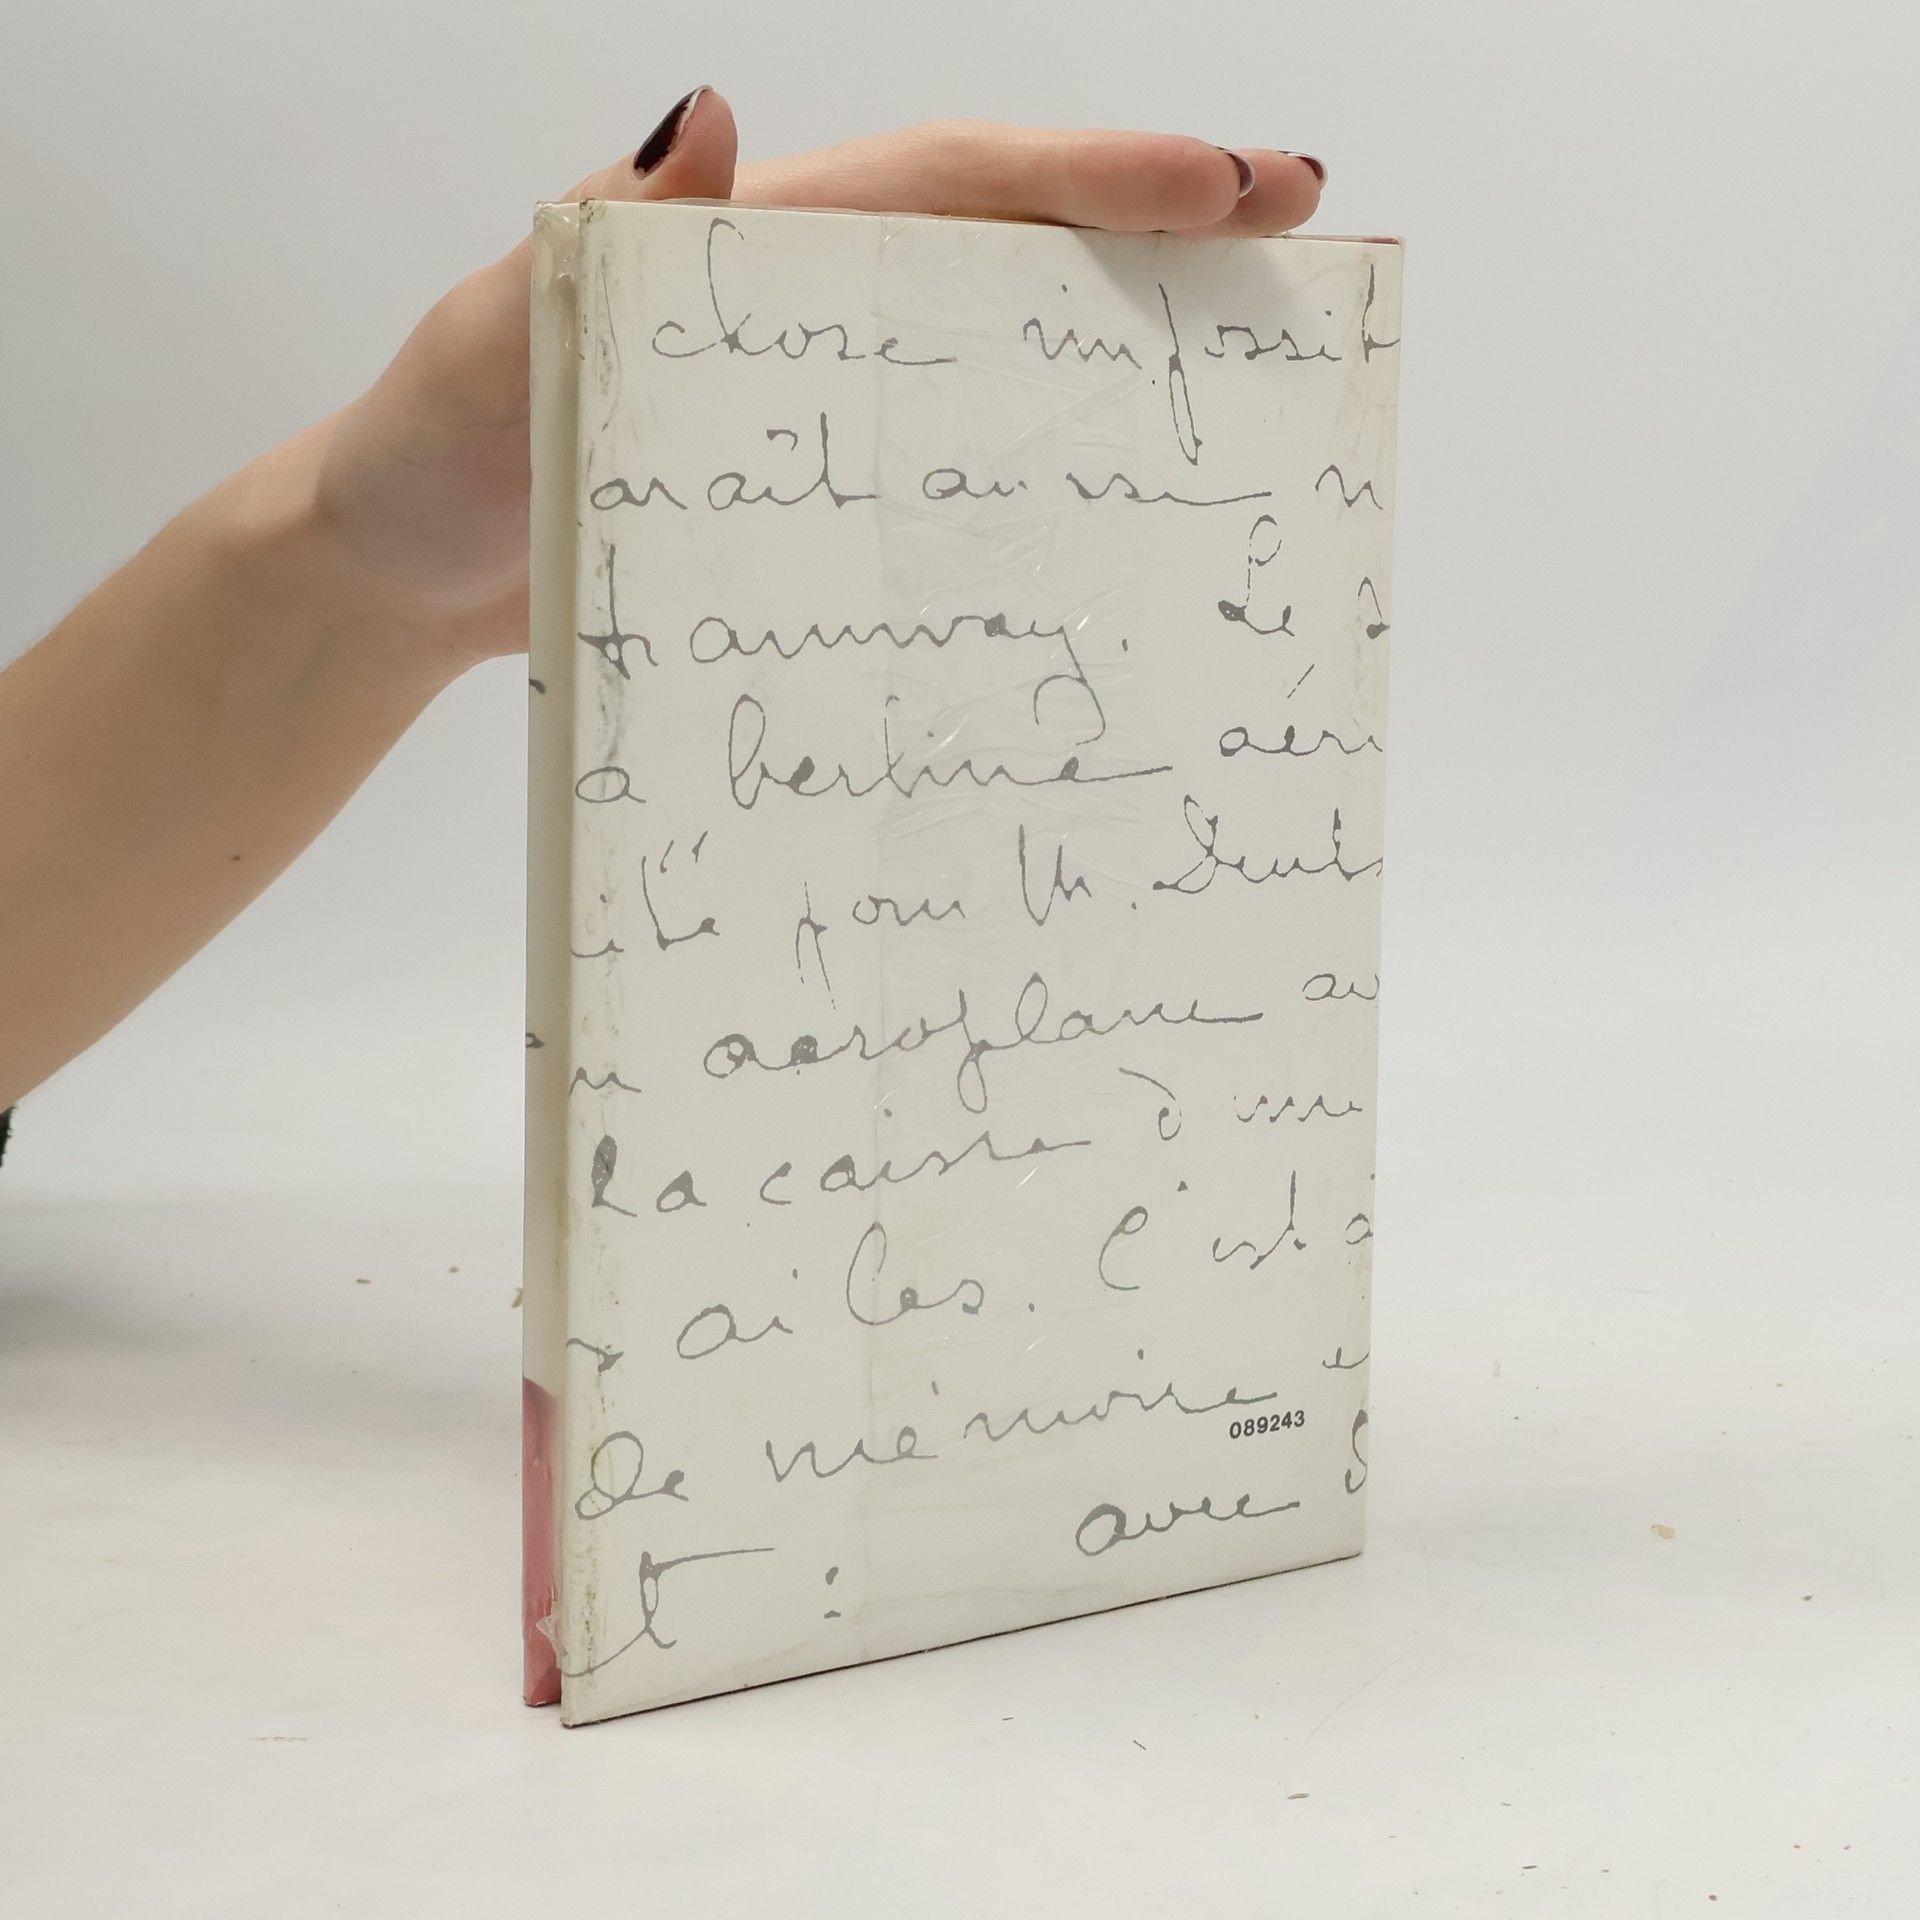 chose impossib
araît aussi n
tramway. Le s
a berline aéri
ité pour M. Deuts
n aeroplane av
la caisse à
s ailes. C'est à
de mémoire e
089243
t : avec s